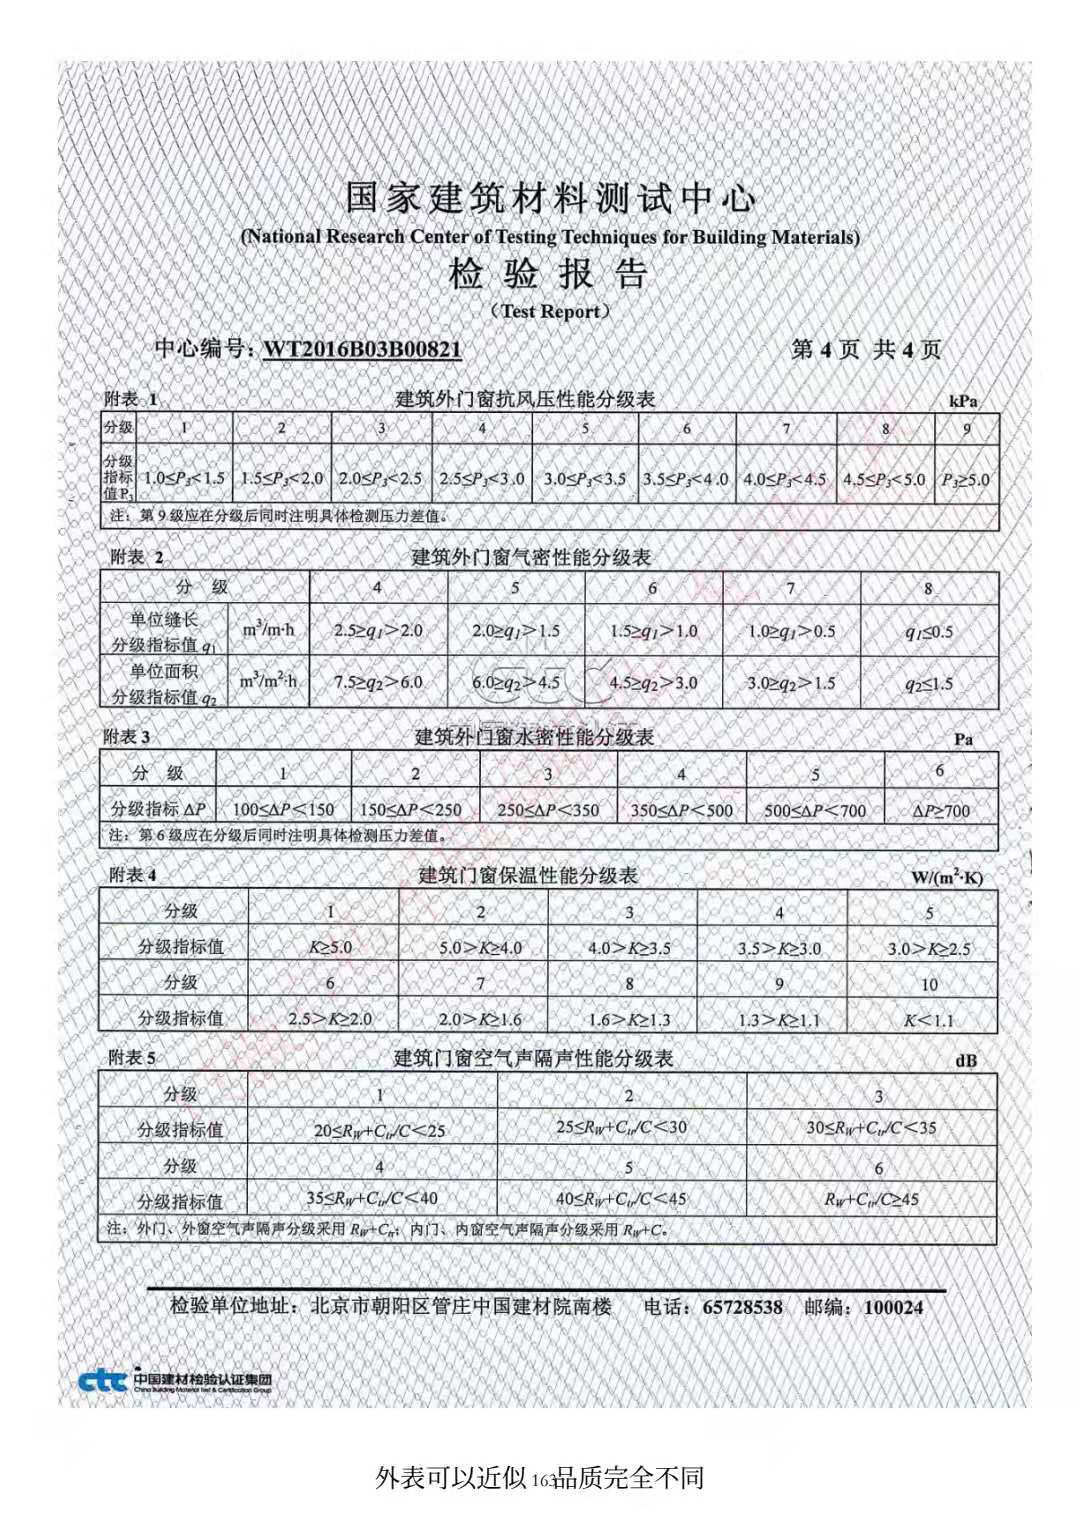 国家建筑材料测试中心
(National Research Center of Testing Techniques for Building Materials)
检验报告
（Test Report）
中心编号：WT2016B03B00821 第 4 页 共 4 页
附表 1 建筑外门窗抗风压性能分级表 kPa
分级 1 2 3 4 5 6 7 8 9
分级指标值P₃ 1.0≤P₃<1.5 1.5≤P₃<2.0 2.0≤P₃<2.5 2.5≤P₃<3.0 3.0≤P₃<3.5 3.5≤P₃<4.0 4.0≤P₃<4.5 4.5≤P₃<5.0 P₃≥5.0
注：第 9 级应在分级后同时注明具体检测压力差值。
附表 2 建筑外门窗气密性能分级表
分 级 4 5 6 7 8
单位缝长分级指标值 q₁ m³/m·h 2.5≥q₁＞2.0 2.0≥q₁＞1.5 1.5≥q₁＞1.0 1.0≥q₁＞0.5 q₁≤0.5
单位面积分级指标值 q₂ m³/m²·h 7.5≥q₂＞6.0 6.0≥q₂＞4.5 4.5≥q₂＞3.0 3.0≥q₂＞1.5 q₂≤1.5
附表 3 建筑外门窗水密性能分级表 Pa
分 级 1 2 3 4 5 6
分级指标 ΔP 100≤ΔP＜150 150≤ΔP＜250 250≤ΔP＜350 350≤ΔP＜500 500≤ΔP＜700 ΔP≥700
注：第 6 级应在分级后同时注明具体检测压力差值。
附表 4 建筑门窗保温性能分级表 W/(m²·K)
分级 1 2 3 4 5
分级指标值 K≥5.0 5.0＞K≥4.0 4.0＞K≥3.5 3.5＞K≥3.0 3.0＞K≥2.5
分级 6 7 8 9 10
分级指标值 2.5＞K≥2.0 2.0＞K≥1.6 1.6＞K≥1.3 1.3＞K≥1.1 K＜1.1
附表 5 建筑门窗空气声隔声性能分级表 dB
分级 1 2 3
分级指标值 20≤Rw+Ctr/C＜25 25≤Rw+Ctr/C＜30 30≤Rw+Ctr/C＜35
分级 4 5 6
分级指标值 35≤Rw+Ctr/C＜40 40≤Rw+Ctr/C＜45 Rw+Ctr/C≥45
注：外门、外窗空气声隔声分级采用 Rw+Ctr；内门、内窗空气声隔声分级采用 Rw+C。
检验单位地址：北京市朝阳区管庄中国建材院南楼 电话：65728538 邮编：100024
ctc 中国建材检验认证集团
China Building Material Test & Certification Group
外表可以近似 163 品质完全不同